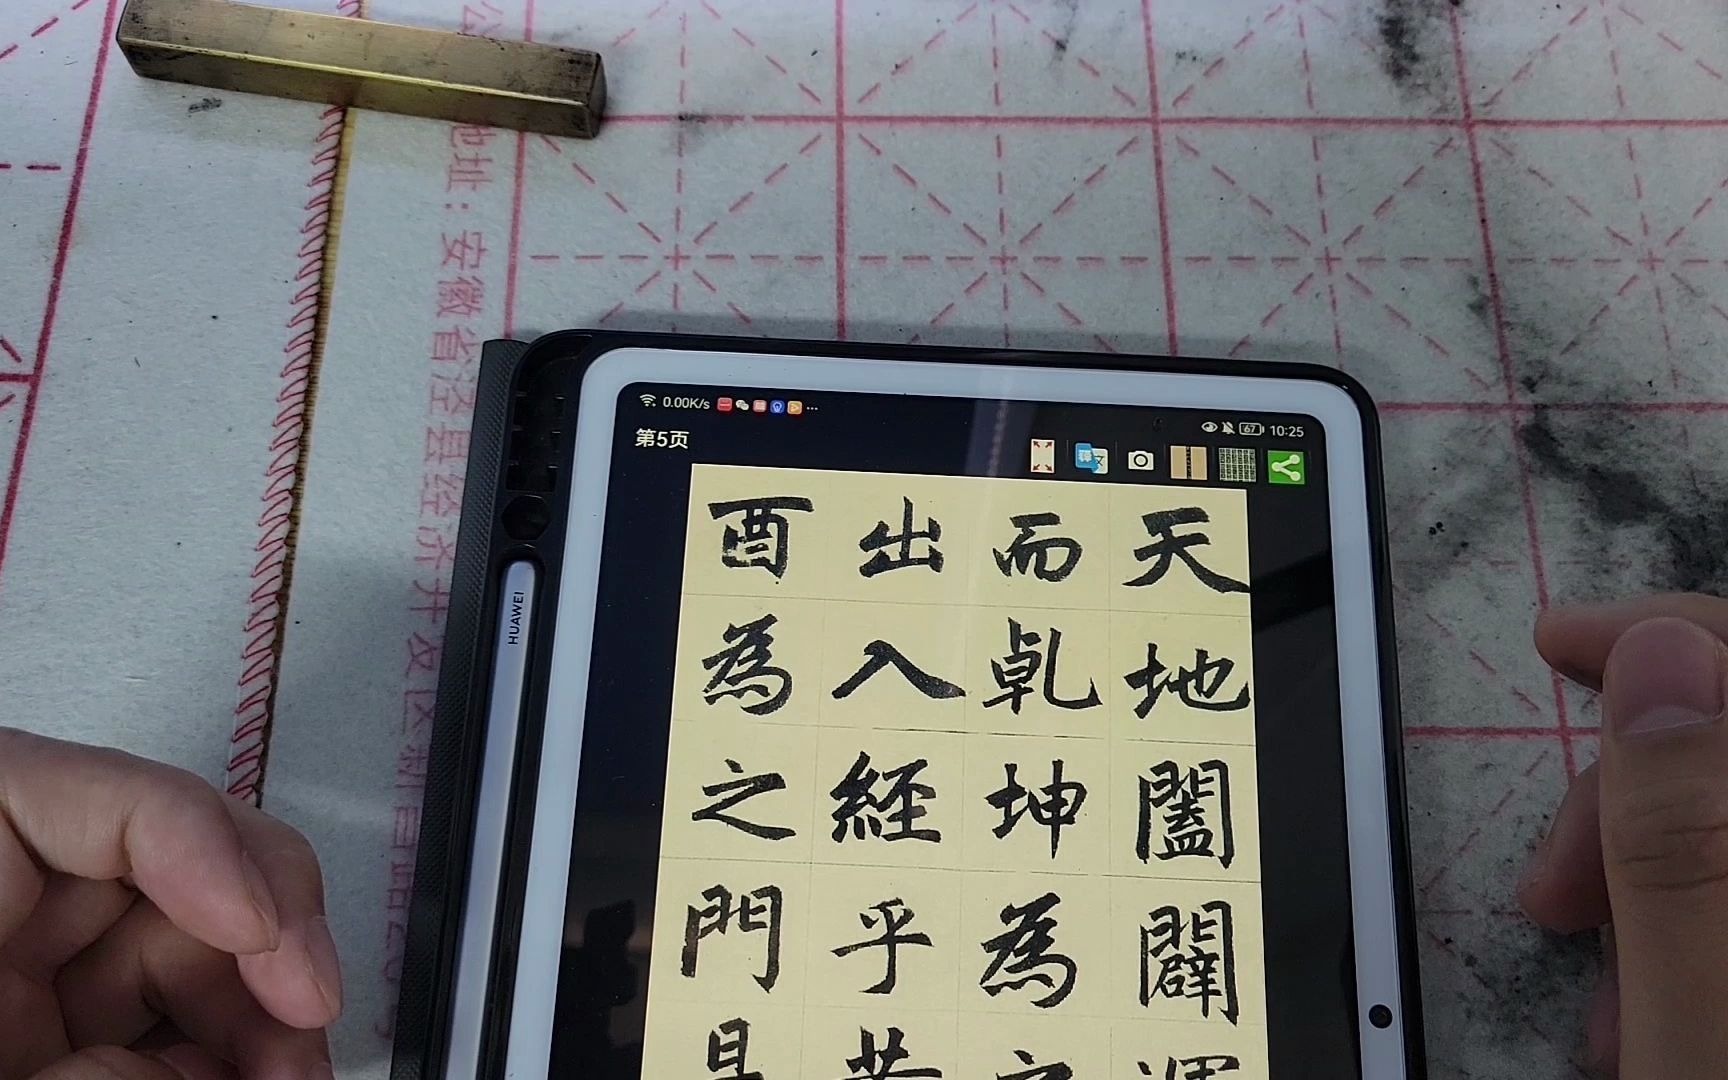 0.00K/s
67
10:25
第5页
天地闔闢運
而乹坤為之
出入經乎黄
酉為之門是
HUAWEI
地址:安徽省泾县经济开发区